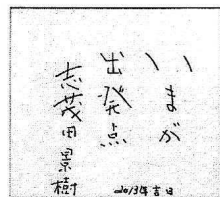 いまが
出発点
志茂田景樹
2013年吉日